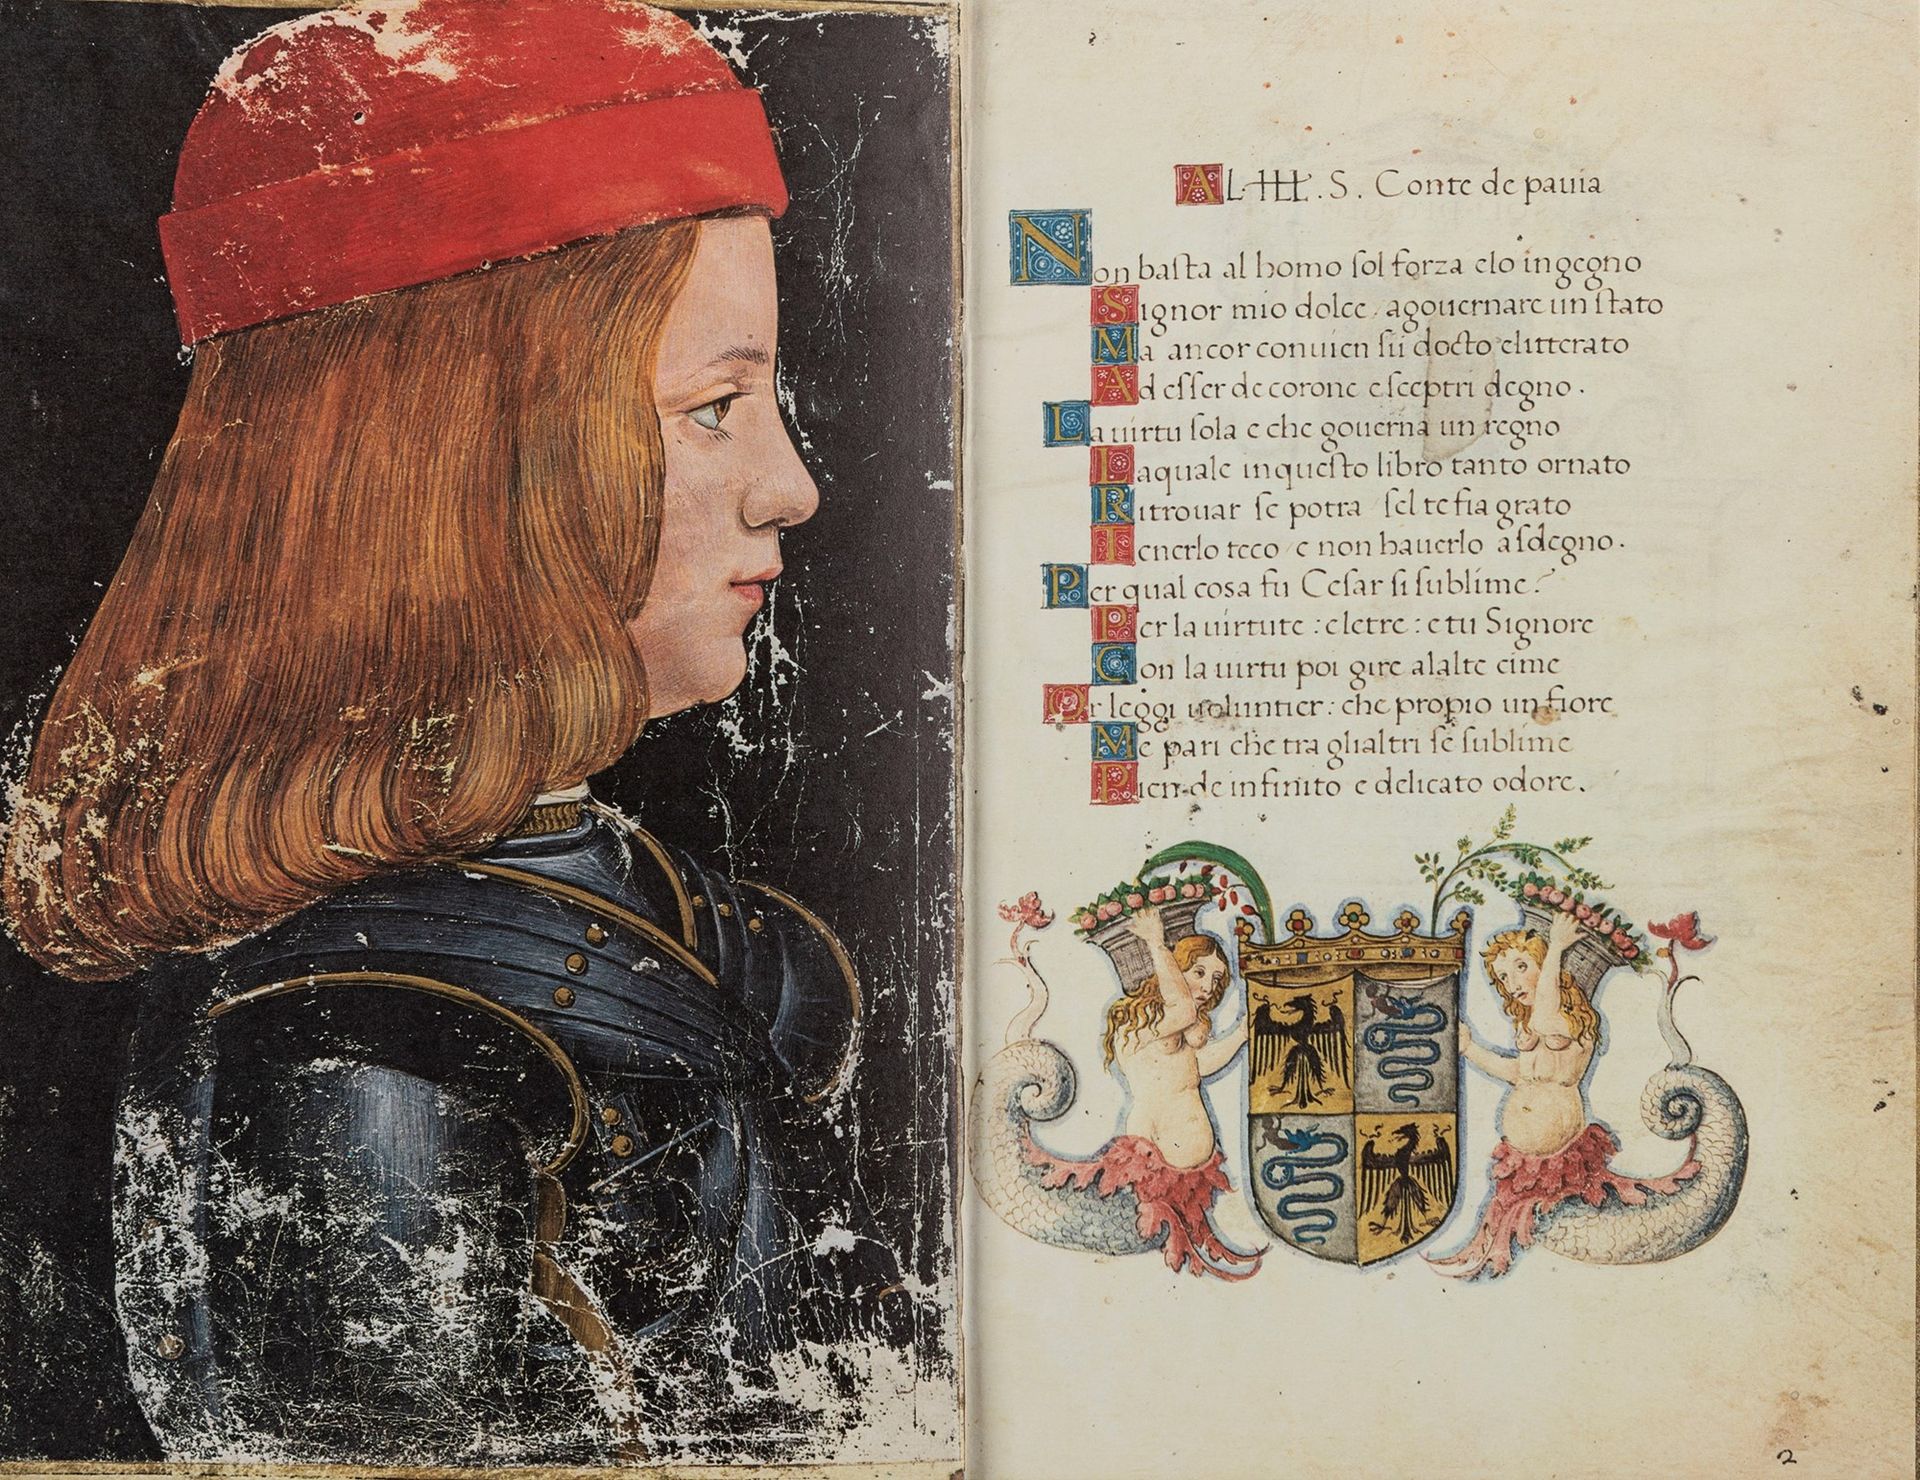 AL ILL. S. Conte de pauia
Non basta al homo sol forza elo ingegno
Signor mio dolce, agouernare un stato
Ma ancor conuien sii docto elitterato
Ad esser de corone e sceptri degno.
La uirtu sola e che gouerna un regno
Laquale inquesto libro tanto ornato
Ritrouar se potra / sel te fia grato
Tenerlo teco / e non hauerlo asdegno.
Per qual cosa fu Cesar si sublime?
Per la uirtute : eletre : e tu Signore
Con la uirtu poi gire alalte cime
Or leggi uoluntier: che propio un fiore
Me pari che tra glialtri se sublime
Pien de infinito e delicato odore.
2